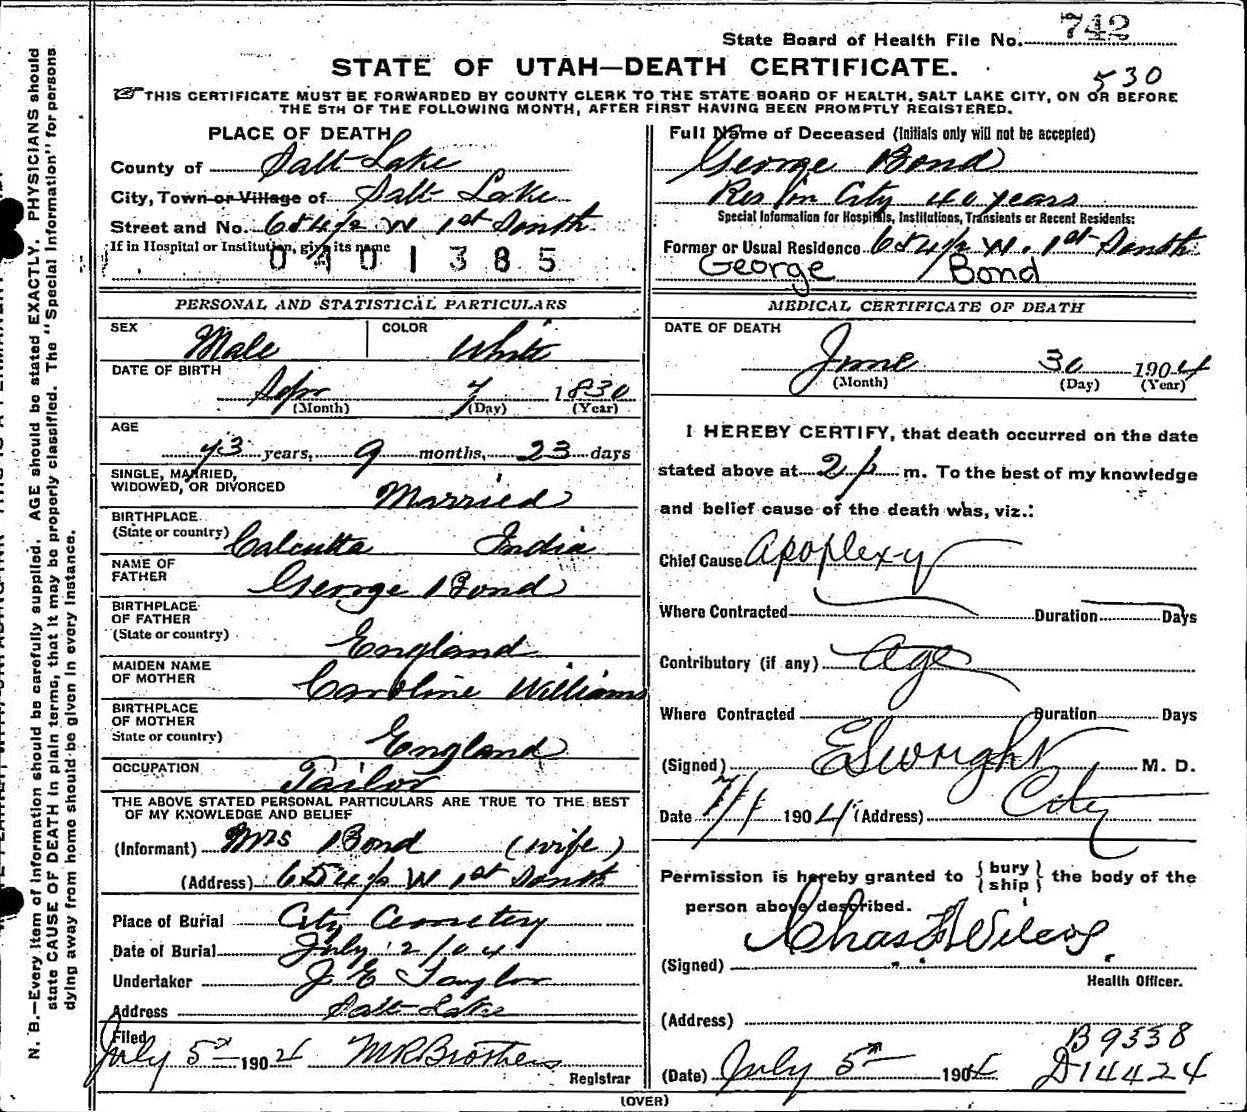 State Board of Health File No. 742
STATE OF UTAH—DEATH CERTIFICATE.
530
THIS CERTIFICATE MUST BE FORWARDED BY COUNTY CLERK TO THE STATE BOARD OF HEALTH, SALT LAKE CITY, ON OR BEFORE
THE 5TH OF THE FOLLOWING MONTH, AFTER FIRST HAVING BEEN PROMPTLY REGISTERED.
PLACE OF DEATH
County of Salt Lake
City, Town or Village of Salt Lake
Street and No. 654½ W 1st South
If in Hospital or Institution, give its name
0401385
PERSONAL AND STATISTICAL PARTICULARS
SEX Male COLOR White
DATE OF BIRTH
Sep 7 1830
(Month) (Day) (Year)
AGE
73 years, 9 months, 23 days
SINGLE, MARRIED,
WIDOWED, OR DIVORCED Married
BIRTHPLACE
(State or country) Calcutta India
NAME OF
FATHER George Bond
BIRTHPLACE
OF FATHER
(State or country) England
MAIDEN NAME
OF MOTHER Caroline Williams
BIRTHPLACE
OF MOTHER
State or country) England
OCCUPATION Tailor
THE ABOVE STATED PERSONAL PARTICULARS ARE TRUE TO THE BEST
OF MY KNOWLEDGE AND BELIEF
(Informant) Mrs Bond (wife)
(Address) 654½ W 1st South
Place of Burial City Cemetery
Date of Burial July 2/04
Undertaker J E Taylor
Address Salt Lake
Filed
July 5th 1904 Brothers
Registrar
Full Name of Deceased (Initials only will not be accepted)
George Bond
Res in City 40 years
Special Information for Hospitals, Institutions, Transients or Recent Residents:
Former or Usual Residence 654½ W. 1st South
George Bond
MEDICAL CERTIFICATE OF DEATH
DATE OF DEATH
June 30 1904
(Month) (Day) (Year)
I HEREBY CERTIFY, that death occurred on the date
stated above at 2 p m. To the best of my knowledge
and belief cause of the death was, viz.:
Chief Cause Apoplexy
Where Contracted Duration Days
Contributory (if any) Age
Where Contracted Duration Days
(Signed) E S Wright M. D.
Date 7/1 1904 (Address) City
Permission is hereby granted to {bury
ship} the body of the
person above described.
(Signed) Chas Wilcox
Health Officer.
(Address)
(Date) July 5th 1904
B 9338
D 14424
(OVER)
N. B.—Every item of information should be carefully supplied. AGE should be stated EXACTLY. PHYSICIANS should
state CAUSE OF DEATH in plain terms, that it may be properly classified. The "Special Information" for persons
dying away from home should be given in every instance.